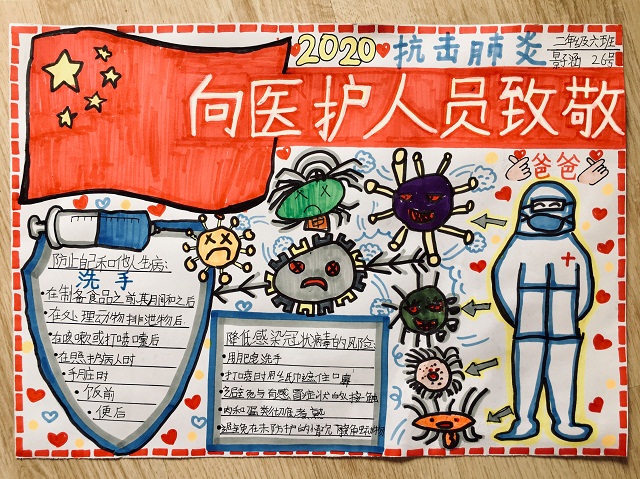 2020 抗击肺炎
二年级六班
26号
向医护人员致敬
爸爸
防止自己和他人生病:
洗手
•在制备食品之前、其间和之后
•在处理动物排泄物后
•在咳嗽或打喷嚏后
•在照护病人时
•手脏时
•饭前
•便后
降低感染冠状病毒的风险:
•用肥皂洗手
•打喷时用纸巾遮住口鼻
•避免与有感冒症状的人接触
•肉和蛋类彻底煮熟
•避免在未防护的情况下接触